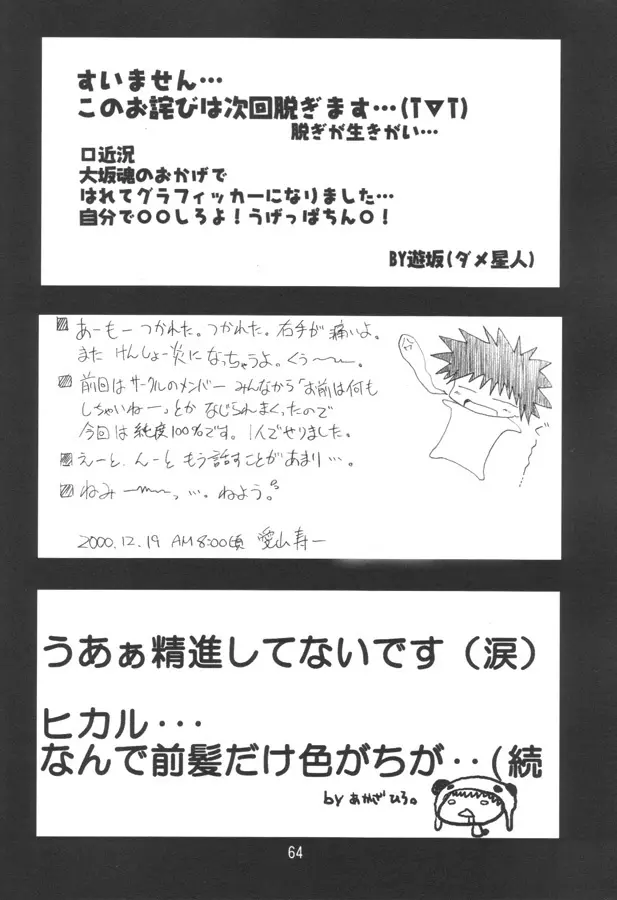 すいません…
このお詫びは次回脱ぎます…(T▽T)
脱ぎが生きがい…
口近況
大坂魂のおかげで
はれてグラフィッカーになりました…
自分で〇〇しろよ!うげっぱちん〇!
BY遊坂(ダメ星人)
あーもー つかれた。つかれた。右手が痛いよ。
また けんしょー炎に なっちゃうよ。くぅ〜〜。
前回は サークルのメンバー みんなから「お前は何も
しちゃいねー」とか なじられまくったので
今回は 純度100%です。1人でやりました。
えーと、んーと もう話すことがあまり…。
ねみー〜〜っ、…。ねよう。
2000.12.19 AM8:00頃 愛山寿一
ぐー
うあぁ精進してないです(涙)
ヒカル・・・
なんで前髪だけ色がちが・・(続
by あかざひろ。
64